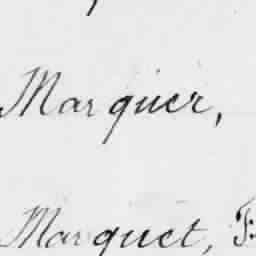 Marquer,
Marquet, F